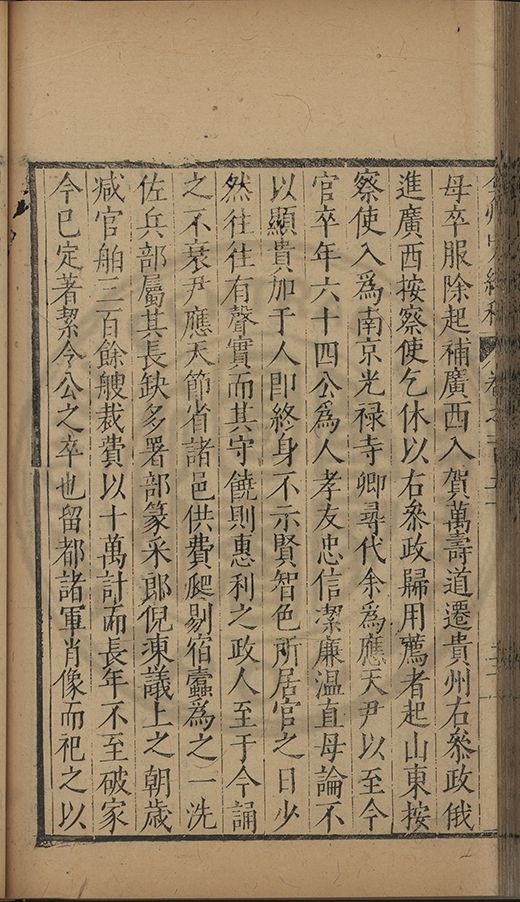 母卒服除起補廣西入賀萬壽道遷貴州右叅政俄
進廣西按察使乞休以右叅政歸用薦者起山東按
察使入爲南京光禄寺卿尋代余爲應天尹以至今
官卒年六十四公爲人孝友忠信潔廉温直毋論不
以顯貴加于人即終身不示賢智色所居官之日少
然往往有聲實而其守饒則惠利之政人至于今誦
之不衰尹應天節省諸邑供費爬剔宿蠹爲之一洗
佐兵部屬其長缺多署部篆采郎倪凍議上之朝歲
减官舶三百餘艘裁費以十萬計而長年不至破家
今已定著絜令公之卒也留都諸軍肖像而祀之以